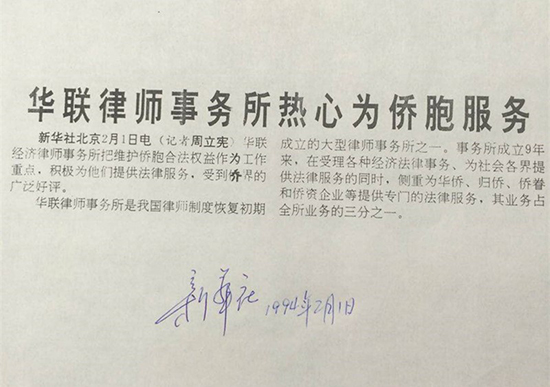 华联律师事务所热心为侨胞服务
新华社北京2月1日电（记者周立宪）华联
经济律师事务所把维护侨胞合法权益作为工作
重点，积极为他们提供法律服务，受到侨界的
广泛好评。
华联律师事务所是我国律师制度恢复初期
成立的大型律师事务所之一。事务所成立9年
来，在受理各种经济法律事务、为社会各界提
供法律服务的同时，侧重为华侨、归侨、侨眷
和侨资企业等提供专门的法律服务，其业务占
全所业务的三分之一。
新华社 1994年2月1日